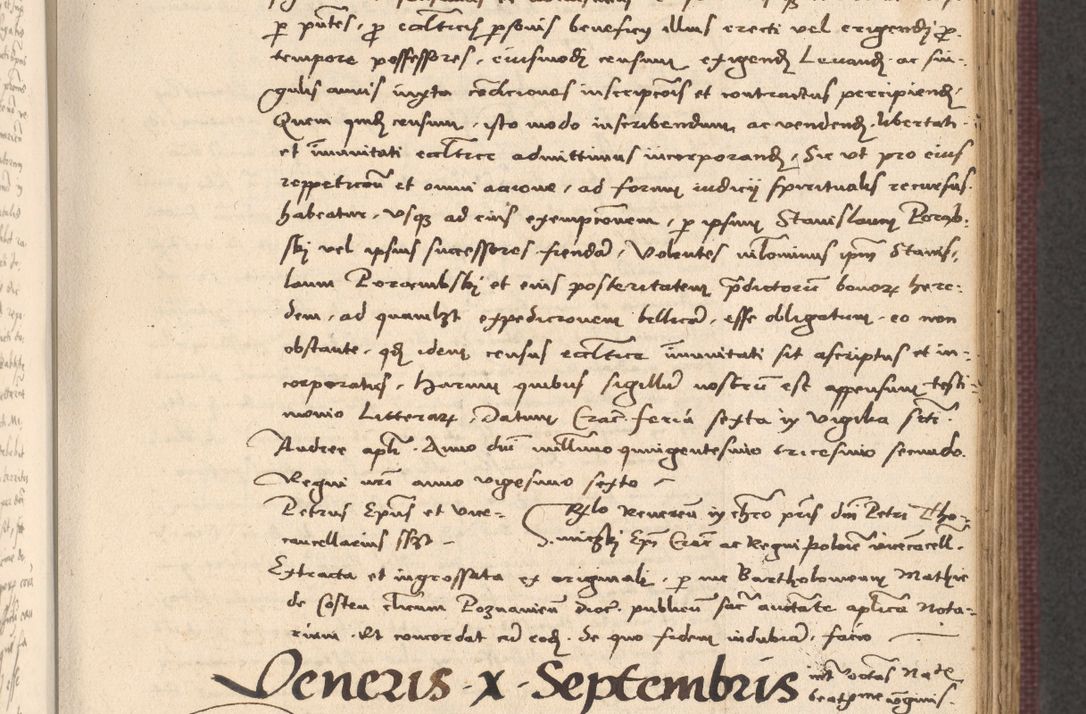 p pntes, p ecclticis psonis beneficij illius erecti vel erigendi p
tempore possessores, eiusmodi censum exigendi Levandi ac sin-
gulis annis iuxta cōdiciones inscripcōis et contractus percipiendi,
Quem quidē censum, isto modo inscribendum ac vendendū, libertati
et īmunitati eccltice admittimus incorporandū, Sic ut pro eius
reppeticōe et omni accione, ad forum iudicij spiritualis recursus
habeatur, Usq3 ad eius exempcōnem, p ipsum Stanislaum Poremb-
ski vel ipsius successores fiendā, Volentes nihlominus ipm Stanis-
laum Porambski et eius posteritatem pdictorū bonor here-
dem, ad quamlibet expedicionem bellicā, esse obligatum, eo non
obstante, qd idem census eccltice īmunitati sit ascriptus et in-
corporatus, Harum quibus sigillū nostrū est appensum testi-
monio Litterar, Datum Crac feria sexta in vigilia scti
Andree apli. Anno dni millmo quingentesimo tricesimo secundo.
Regni nri anno vigesimo sexto
Petrus Epus et Vice-
cancellarius sst
Rlo Reveren in chro pris dni Petri Tho-
miczki Epi Crac ac Regni polonie vicecacell.
Extracta et ingrossata ex originali, p me Bartholomeum Mathie
de Costen clicum Poznanien dioc. publicum sac auctate aplica Nota-
rium. Et concordat cū eodē. De quo fidem indubiā, facio
Veneris x Septembris
Nate
beat me v̄ginis.